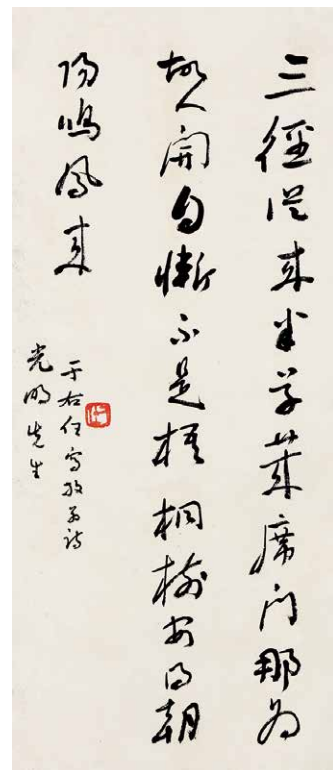 三徑從來半草萊席門那為
故人開自慚不是梧桐樹安得朝
陽鳴鳳來
于右任寫詩
光明先生